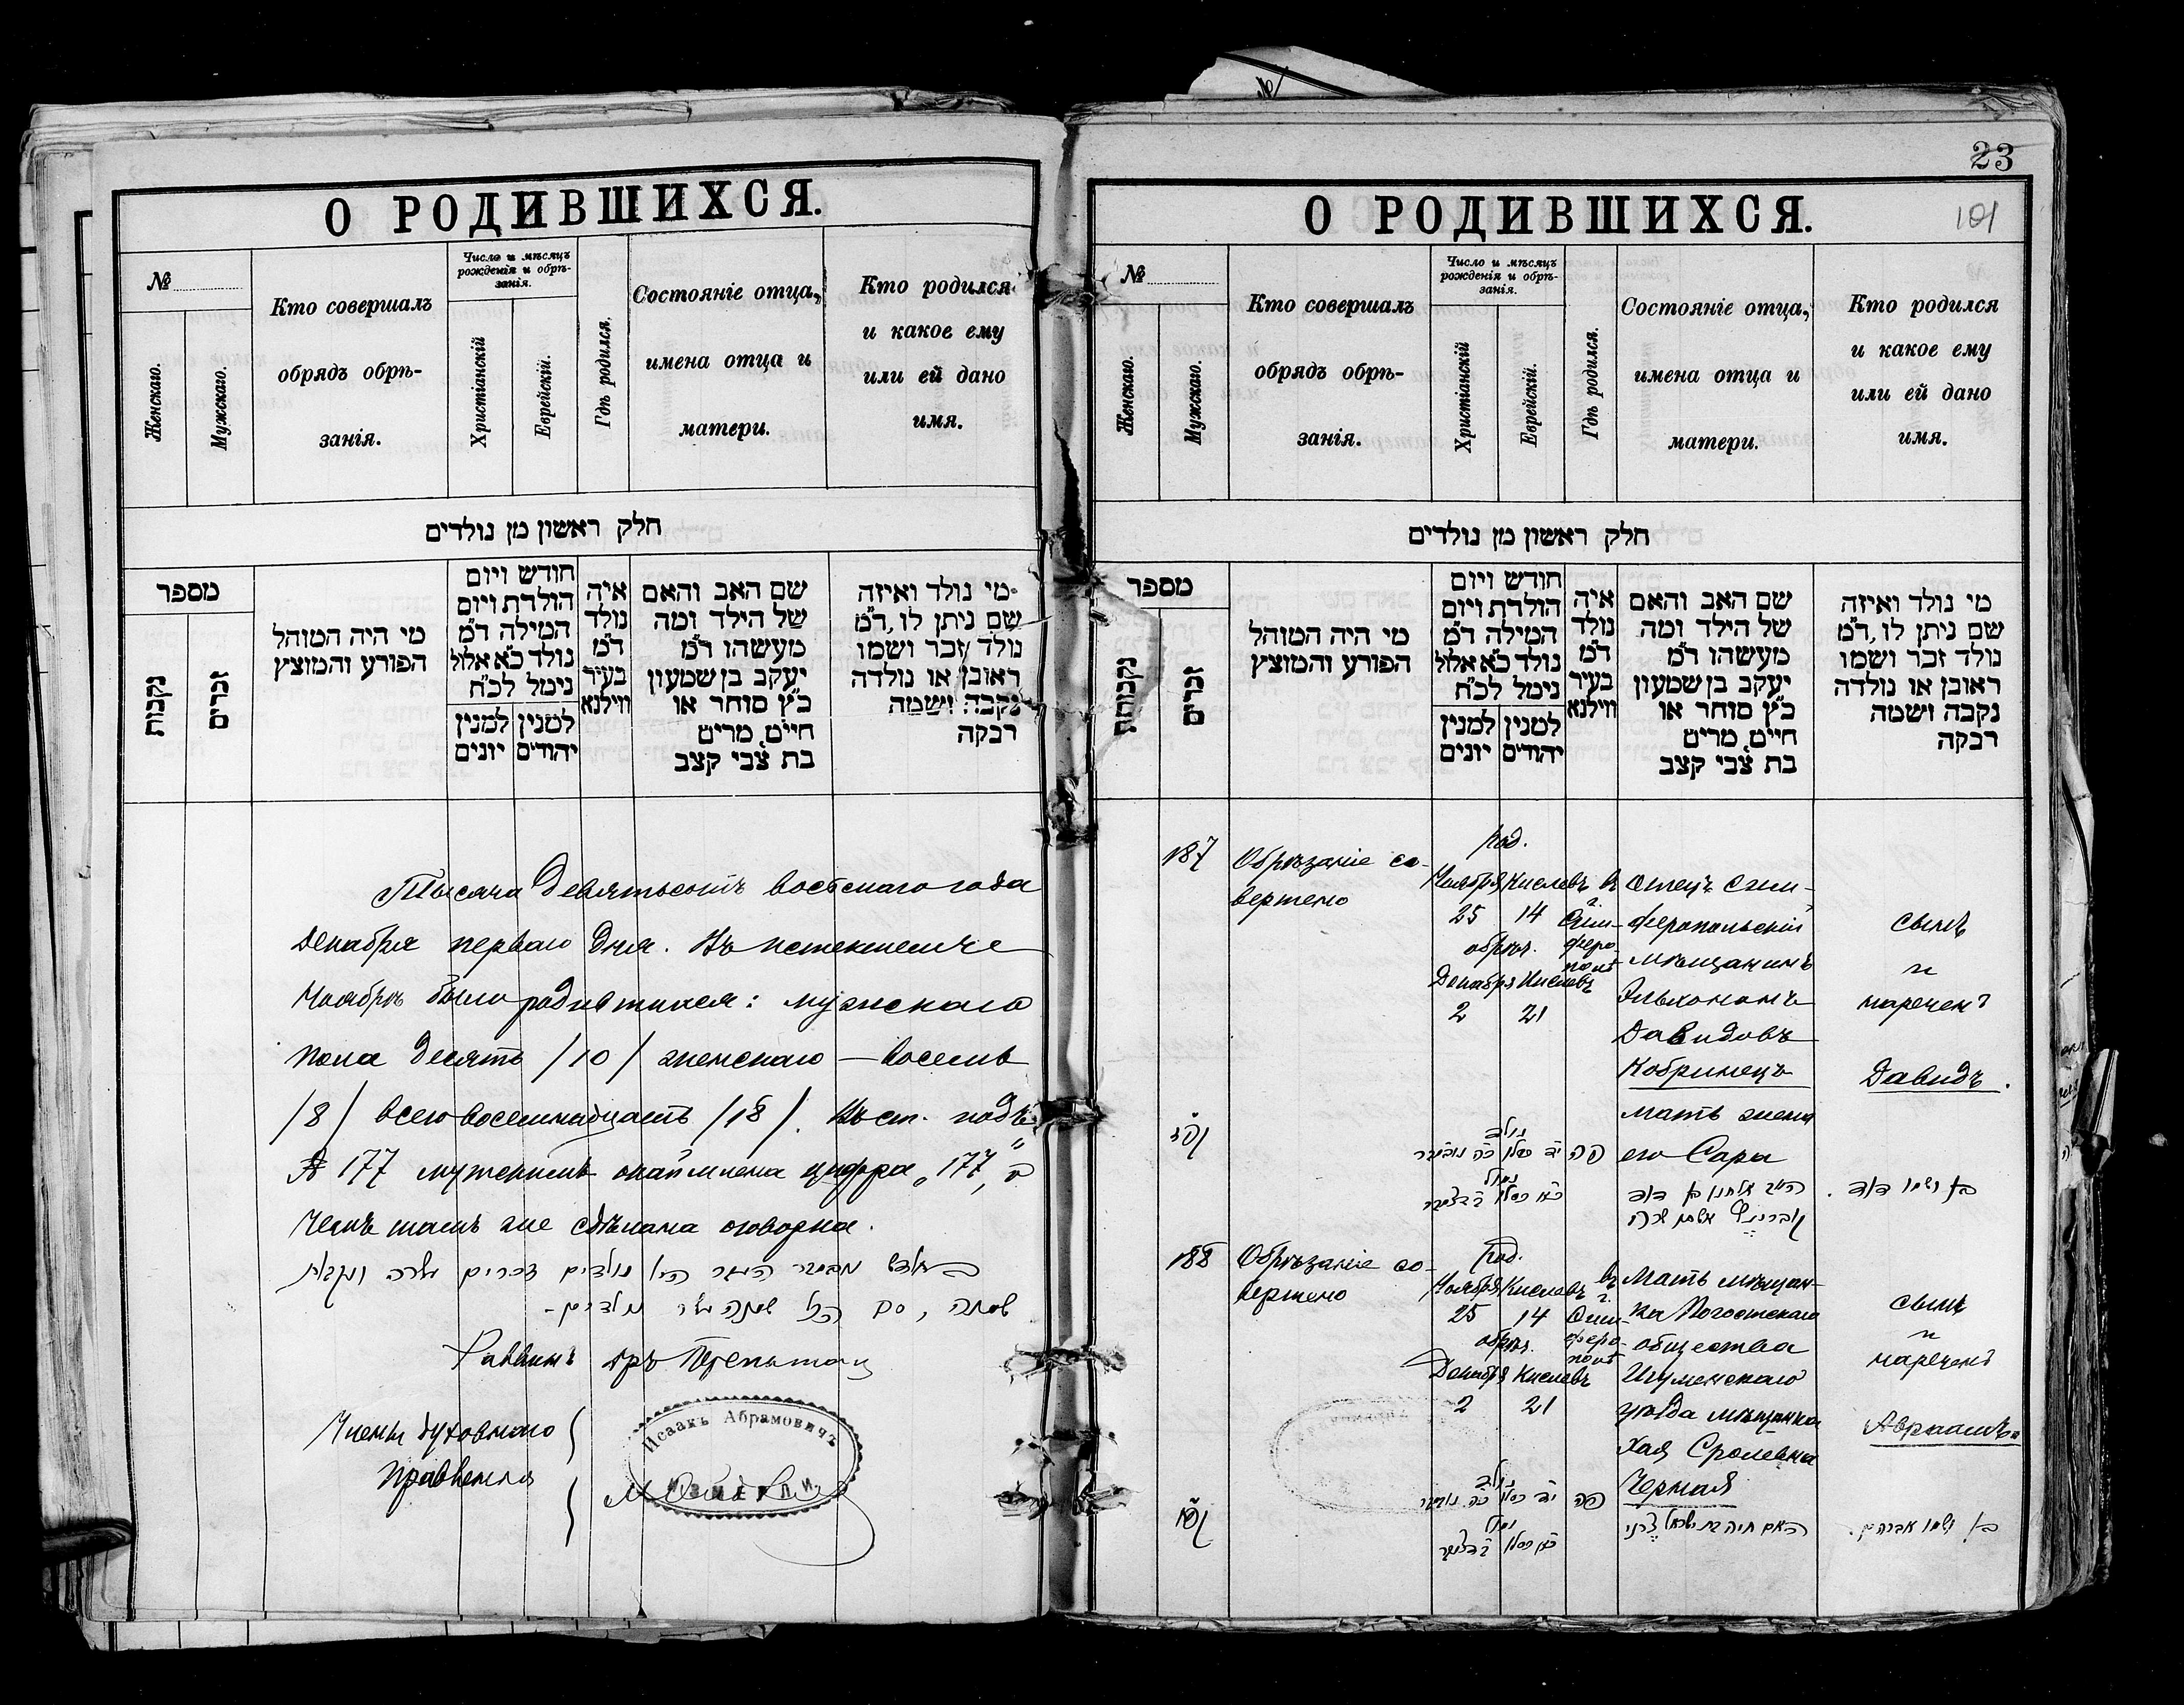 О РОДИВШИХСЯ.
№
Женскаго.
Мужскаго.
Кто совершалъ
обрядъ обрѣ-
занія.
Число и мѣсяцъ
рожденія и обрѣ-
занія.
Христіанскій
Еврейскій.
Гдѣ родился.
Состояніе отца,
имена отца и
матери.
Кто родился
и какое ему
или ей дано
имя.
חלק ראשון מן נולדים
מספר
נקבות
זכרים
מי היה המוהל
הפורע והמוצץ
חודש ויום
הולדת ויום
המילה ד"מ
נולד כ"א אלול
נימל לכ"ח
למנין יהודים
למנין יונים
איה
נולד
ד"מ
בעיר
ווילנא
שם האב והאם
של הילד ומה
מעשהו ד"מ
יעקב בן שמעון
כ"ץ סוחר או
חייט, מרים
בת צבי קצב
מי נולד ואיזה
שם ניתן לו, ד"מ
נולד זכר ושמו
ראובן או נולדה
נקבה ושמה
רבקה
Тысяча девятьсотъ восьмаго года
Декабря перваго дня. Въ истекшемъ
Ноябрѣ было родившихся: мужскаго
пола десять /10/ женскаго — восемь
/8/ всего восемнадцать /18/. Въ ст. подъ
№ 177 мужскимъ цифра „177„ о
чемъ тамъ же сдѣлана оговорка.
נולדים זכרים עשרה ונקבות
שמנה, סם הכל שמנה עשר נולדים-
Раввинъ
Члены духовнаго
правленія
Исаакъ Абрамовичъ
23
О РОДИВШИХСЯ.
101
№
Женскаго.
Мужскаго.
Кто совершалъ
обрядъ обрѣ-
занія.
Число и мѣсяцъ
рожденія и обрѣ-
занія.
Христіанскій
Еврейскій.
Гдѣ родился.
Состояніе отца,
имена отца и
матери.
Кто родился
и какое ему
или ей дано
имя.
חלק ראשון מן נולדים
מספר
נקבות
זכרים
מי היה המוהל
הפורע והמוצץ
חודש ויום
הולדת ויום
המילה ד"מ
נולד כ"א אלול
נימל לכ"ח
למנין יהודים
למנין יונים
איה
נולד
ד"מ
בעיר
ווילנא
שם האב והאם
של הילד ומה
מעשהו ד"מ
יעקב בן שמעון
כ"ץ סוחר או
חייט, מרים
בת צבי קצב
מי נולד ואיזה
שם ניתן לו, ד"מ
נולד זכר ושמו
ראובן או נולדה
נקבה ושמה
רבקה
187
Обрѣзаніе со-
вершено
род.
Ноября Кислевъ
25 14
обрѣз.
Декабря Кислевъ
2 21
въ
г.
Сим-
феро-
полѣ
Отецъ сим-
феропольскій
мѣщанинъ
Эльхононъ
Давидовъ
Кобринецъ
мать жена
его Сара
сынъ
и
нареченъ
Давидъ.
נולד
יד כסלו כה נובעבר
נימול
כא כסלו
פה
האב אלחנן בן דוד
קוברינץ אשתו שרה
בן ושמו דוד.
188
Обрѣзаніе со-
вершено
род.
Ноября Кислевъ
25 14
обрѣз.
Декабря Кислевъ
2 21
въ
г.
Сим-
феро-
полѣ
Мать мѣщан-
ка Погостскаго
общества
Игуменскаго
уѣзда мѣщанка
Хая Сролевна
Черная
сынъ
и
нареченъ
Авраамъ.
נולד
יד כסלו כה
נימול
כא כסלו
פה
האם חיה בת ישראל
בן ושמו אברהם.